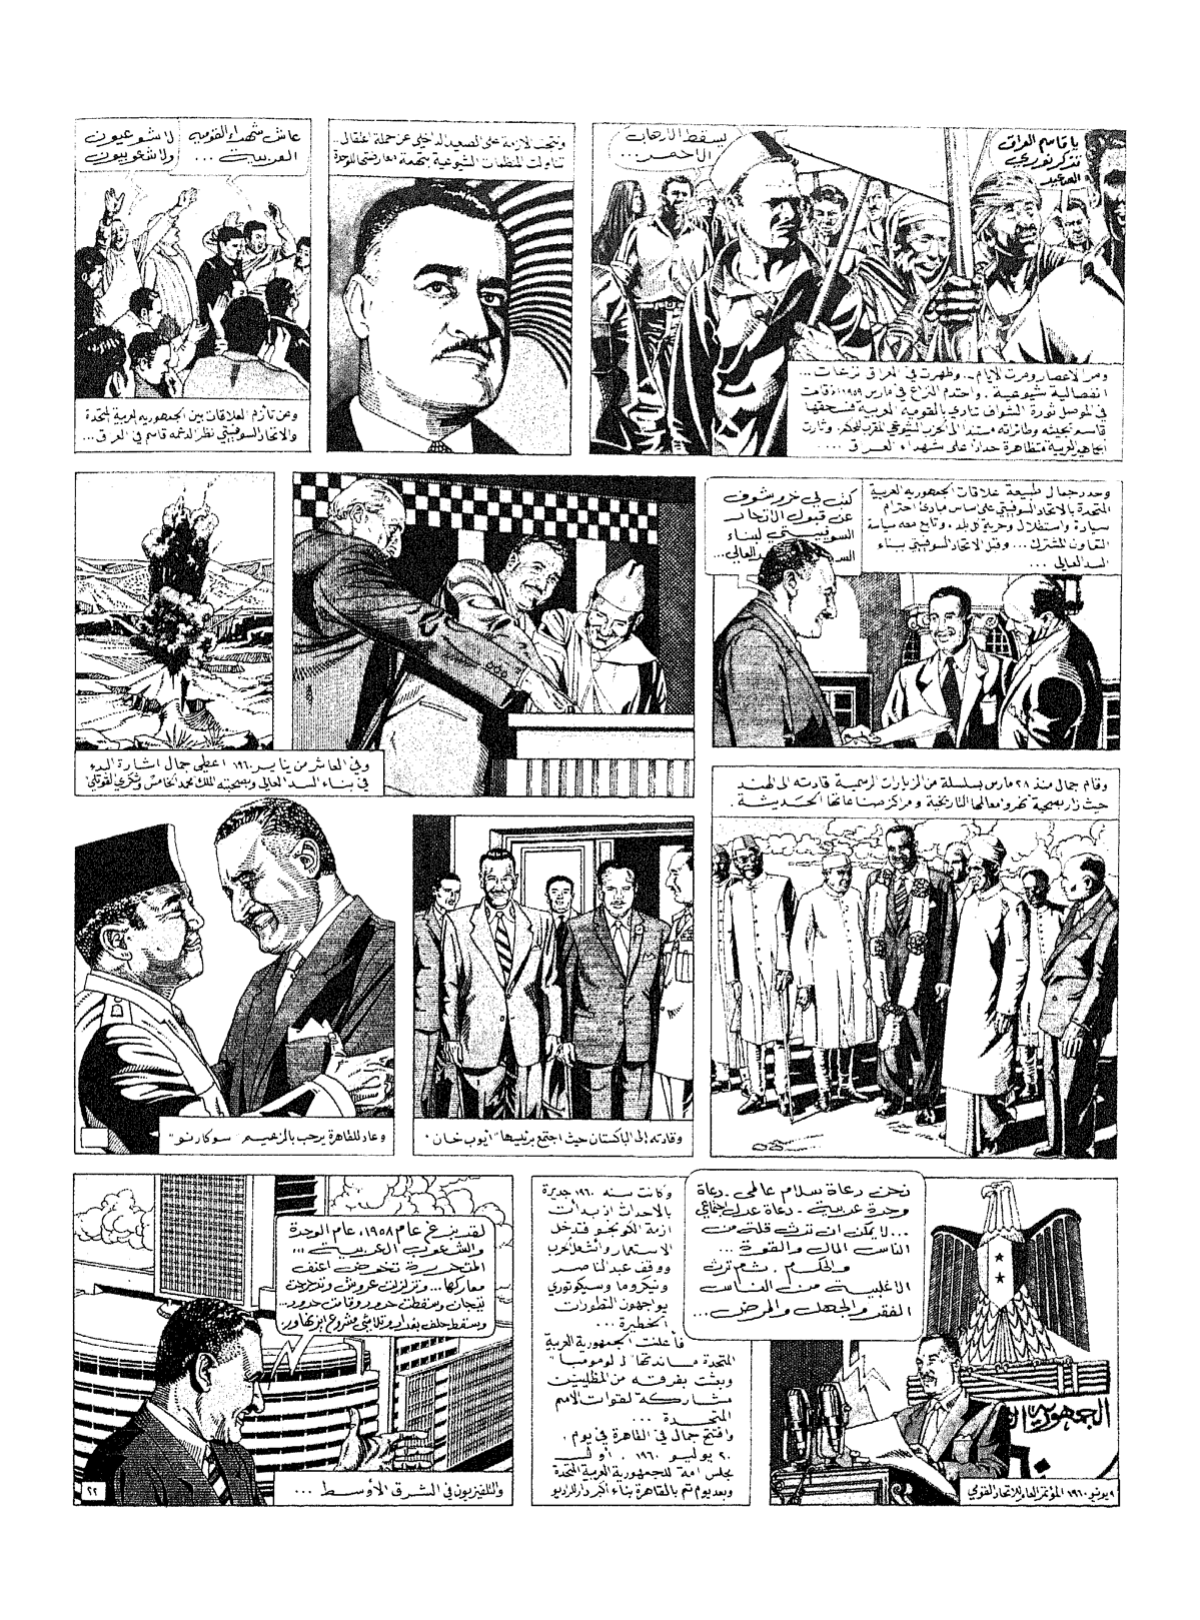 يا قاسم العراق
تذكر نوري
السعيد
يسقط الارهاب
الاحمر...
ومر الاعصار ومرت الايام.. وظهرت في العراق نزعات...
انفصالية شيوعية. واحتدم النزاع في مارس ١٩٥٩ وقامت
في الموصل ثورة الشواف تنادي بالقومية العربية فسحقها
قاسم بجيشه وطائراته مستندا الى الحزب الشيوعي وثارت
الجماهير العربية متظاهرة حدادا على شهداء العراق....
ونتجت الازمة على الصعيد الداخلي عن حملة اعتقال..
تناولت المنظمات الشيوعية بتهمة معارضتي للوحدة
عاش شهداء القومية
العربية...
لا شوعيون
ولا شعوبيون
وعن تأزم العلاقات بين الجمهورية العربية المتحدة
والاتحاد السوفيتي نظرا لدعمه قاسم في العراق...
وحدد جمال طبيعة علاقات الجمهورية العربية
المتحدة بالاتحاد السوفيتي على اساس مبادئ احترام
سيادة واستقلال وحرية كل بلد. وتابع معه سياسة
التعاون المشترك... وقبل الاتحاد السوفيتي ببناء
السد العالي...
كتب لي خروشوف
عن قبول الاتحاد
السوفييتي لبناء
السد العالي...
وفي العاشر من يناير ١٩٦٠ اعطى جمال اشارة البدء
في بناء السد العالي وبصحبته الملك محمد الخامس وشكري القوتلي
وقام جمال منذ ٢٨ مارس بسلسلة من الزيارات الرسمية قادته الى الهند
حيث زار بصحبة نهرو معالمها التاريخية ومراكز صناعاتها الحديثة.
وقادته إلى الباكستان حيث اجتمع برئيسها "أيوب خان"
وعاد للقاهرة يرحب بالزعيم "سوكارنو"
نحن دعاة سلام عالمي. دعاة
وحدة عربية. دعاة عدل اجتماعي
...لا يمكن ان ترث قلة من
الناس المال والقوة...
والحكم. ثم ترث
الاغلبية من الناس
الفقر والجهل والمرض...
الجمهورية
٩ يونيو ١٩٦٠ المؤتمر العام للاتحاد القومي
وكانت سنة ١٩٦٠ جديرة
بالاحداث اذ بدأت
ازمة الكونجو فتدخل
الاستعمار واشعل الحرب
ووقف عبد الناصر
ونيكروما وسيكوتوري
يواجهون التطورات
الخطيرة...
فأعلنت الجمهورية العربية
المتحدة مساندتها لـ "لومومبا"
وبعثت بفرقة من المظليين
مشاركة لقوات الامم
المتحدة...
وافتتح جمال في القاهرة في يوم.
٢٠ يوليو ١٩٦٠. أول
مجلس أمة للجمهورية العربية المتحدة
وبعد يوم تم بالقاهرة بناء أكبر دار للراديو
لقد بزغ عام ١٩٥٨، عام الوحدة
والشعوب العربية...
المتحررة تخوض اعنف
معاركها... وتزلزلت عروش وتدحرجت
تيجان وسقطت حدود وقامت حدود...
وسقط حلف بغداد وتلاشى مشروع ايزنهاور.
والتليفزيون في الشرق الأوسط...
٢٢